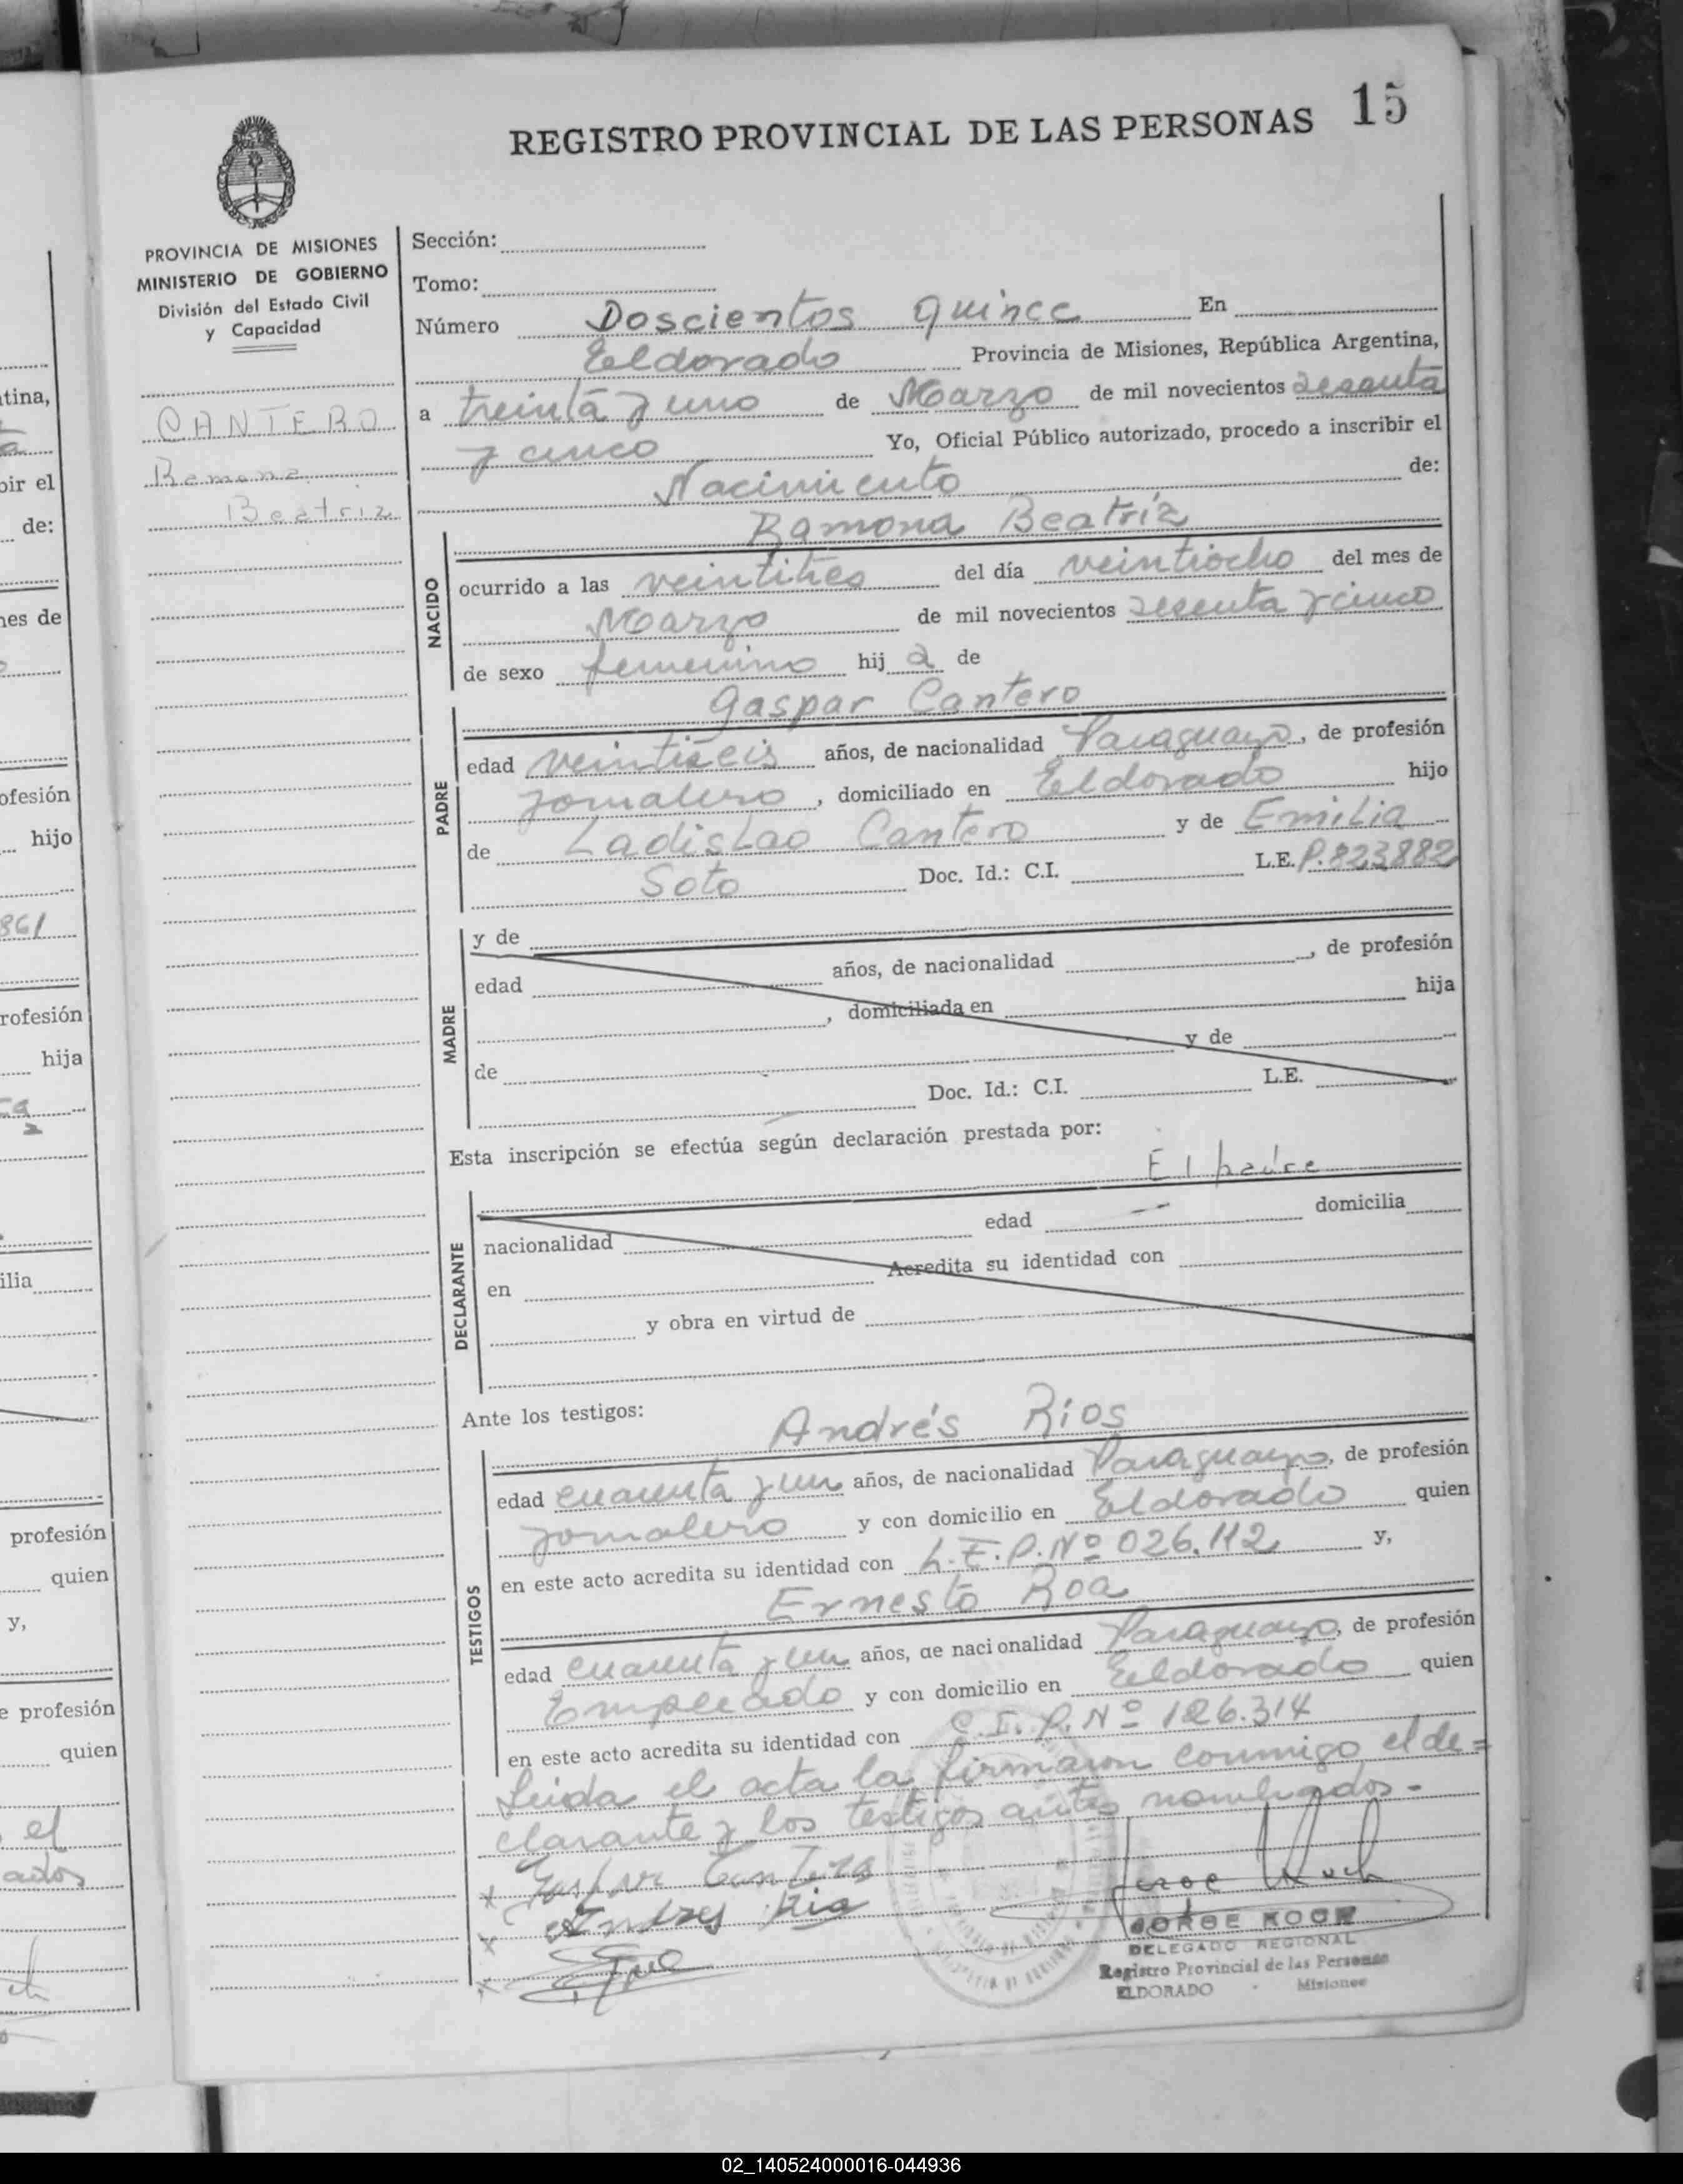 REGISTRO PROVINCIAL DE LAS PERSONAS 15
PROVINCIA DE MISIONES
MINISTERIO DE GOBIERNO
División del Estado Civil
y Capacidad
CANTERO
Ramona
Beatriz
Sección:
Tomo:
Número Doscientos quince En
Eldorado Provincia de Misiones, República Argentina,
a treinta y uno de Marzo de mil novecientos sesenta
y cinco Yo, Oficial Público autorizado, procedo a inscribir el
Nacimiento de:
NACIDO
Ramona Beatriz
ocurrido a las veintitres del día veintiocho del mes de
Marzo de mil novecientos sesenta y cinco
de sexo femenino hij a de
PADRE
Gaspar Cantero
edad veintiseis años, de nacionalidad Paraguayo, de profesión
Jornalero, domiciliado en Eldorado hijo
de Ladislao Cantero y de Emilia
Soto Doc. Id.: C.I. L.E. P.823882
MADRE
y de
edad años, de nacionalidad , de profesión
, domiciliada en hija
de y de
Doc. Id.: C.I. L.E.
Esta inscripción se efectúa según declaración prestada por:
El padre
DECLARANTE
nacionalidad edad domicilia
en Acredita su identidad con
y obra en virtud de
Ante los testigos:
TESTIGOS
Andrés Rios
edad cuarenta y un años, de nacionalidad Paraguayo, de profesión
Jornalero y con domicilio en Eldorado quien
en este acto acredita su identidad con L.E.P. Nº 026.112 y,
Ernesto Roa
edad cuarenta y un años, de nacionalidad Paraguayo, de profesión
Empleado y con domicilio en Eldorado quien
en este acto acredita su identidad con C.I.P. Nº 126.314
Leida el acta la firmaron conmigo el de=
clarante y los testigos antes nombrados.-
x Gaspar Cantero
x Andres Rio
x
JORGE KOCH
DELEGADO REGIONAL
Registro Provincial de las Personas
ELDORADO - Misiones
tina,
bir el
de:
nes de
ofesión
hijo
861
rofesión
hija
ilia
profesión
quien
y,
e profesión
quien
el
ados
02_140524000016-044936